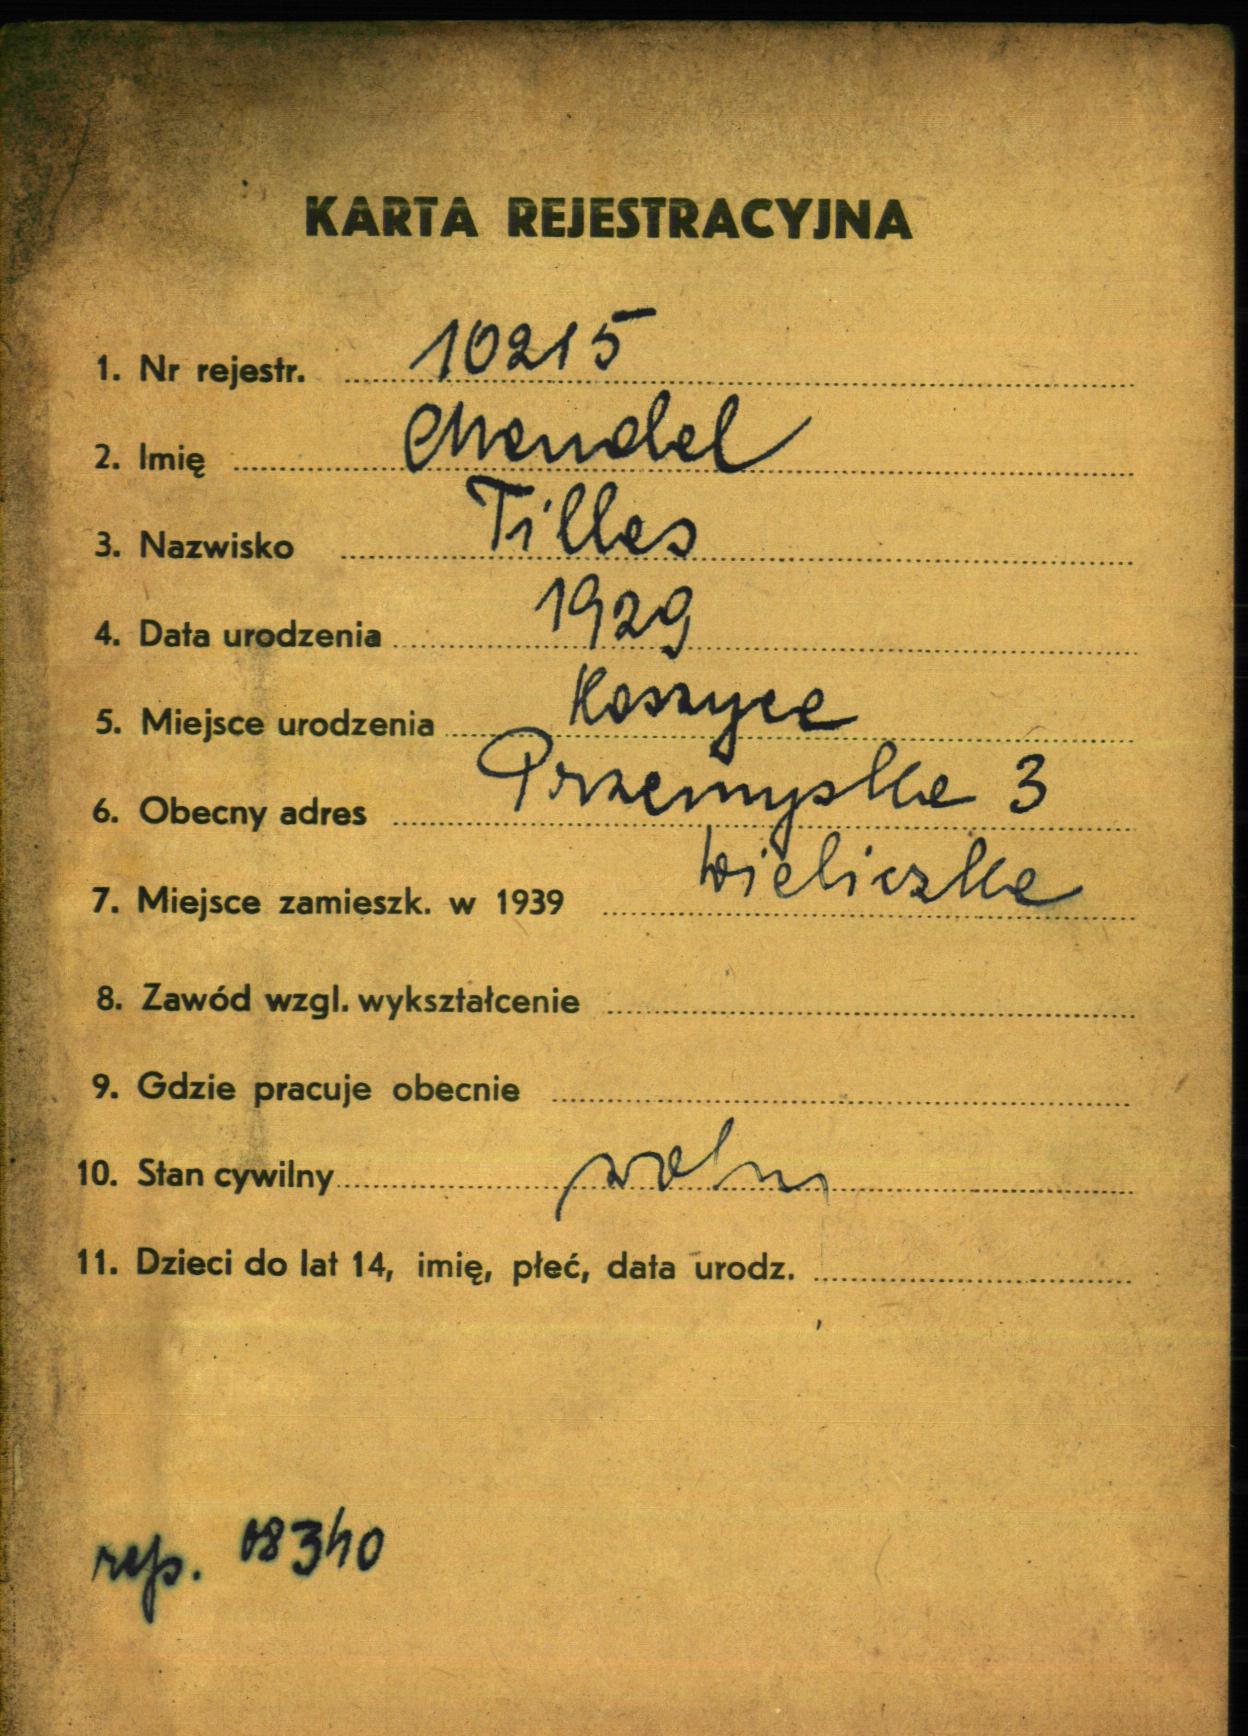 KARTA REJESTRACYJNA
1. Nr rejestr. 10215
2. Imię Mendel
3. Nazwisko Tilles
4. Data urodzenia 1929
5. Miejsce urodzenia Koszyce
6. Obecny adres Przemyska 3
7. Miejsce zamieszk. w 1939 Wieliczka
8. Zawód wzgl. wykształcenie
9. Gdzie pracuje obecnie
10. Stan cywilny wolny
11. Dzieci do lat 14, imię, płeć, data urodz.
rep. 08340